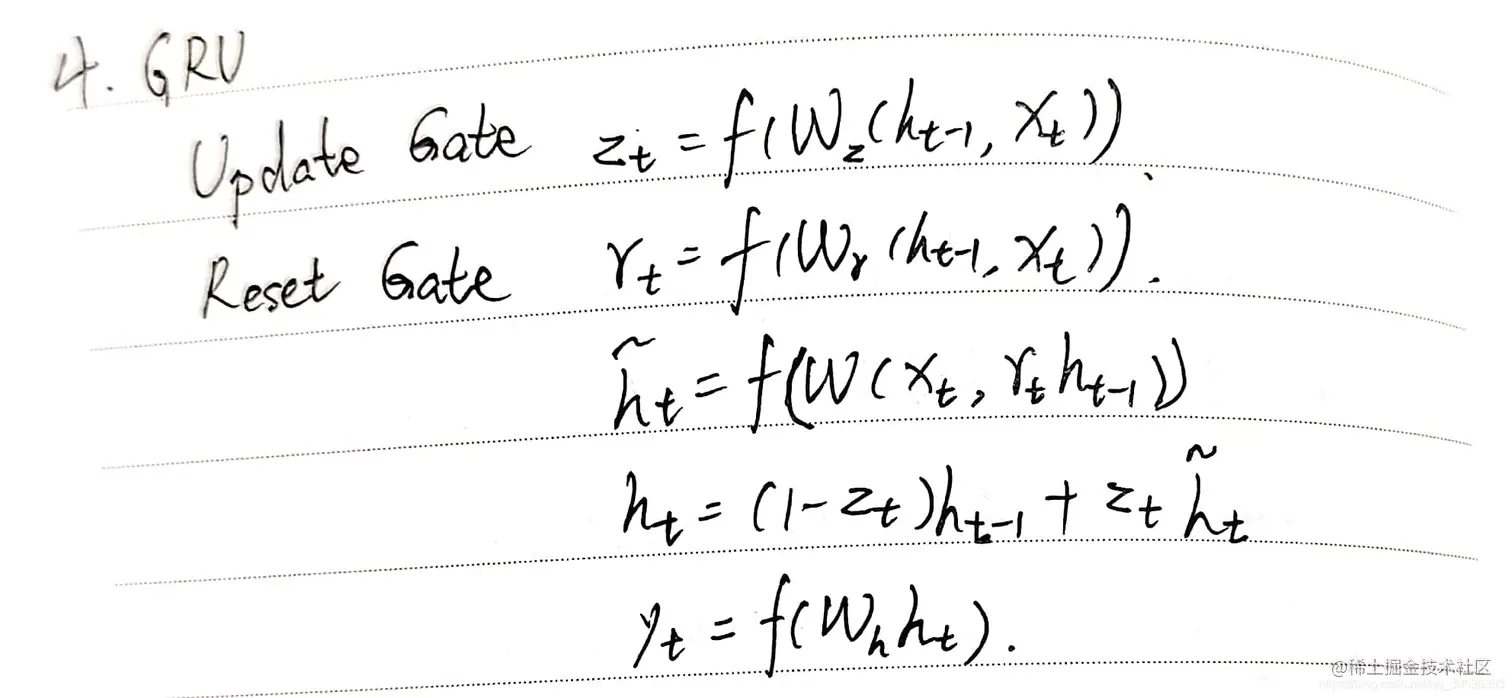 4. GRU
Update Gate z_t = f(W_z(h_{t-1}, x_t)).
Reset Gate r_t = f(W_r(h_{t-1}, x_t)).
h̃_t = f(W(x_t, r_t h_{t-1}))
h_t = (1-z_t)h_{t-1} + z_t h̃_t
y_t = f(W_h h_t).
@稀土掘金技术社区